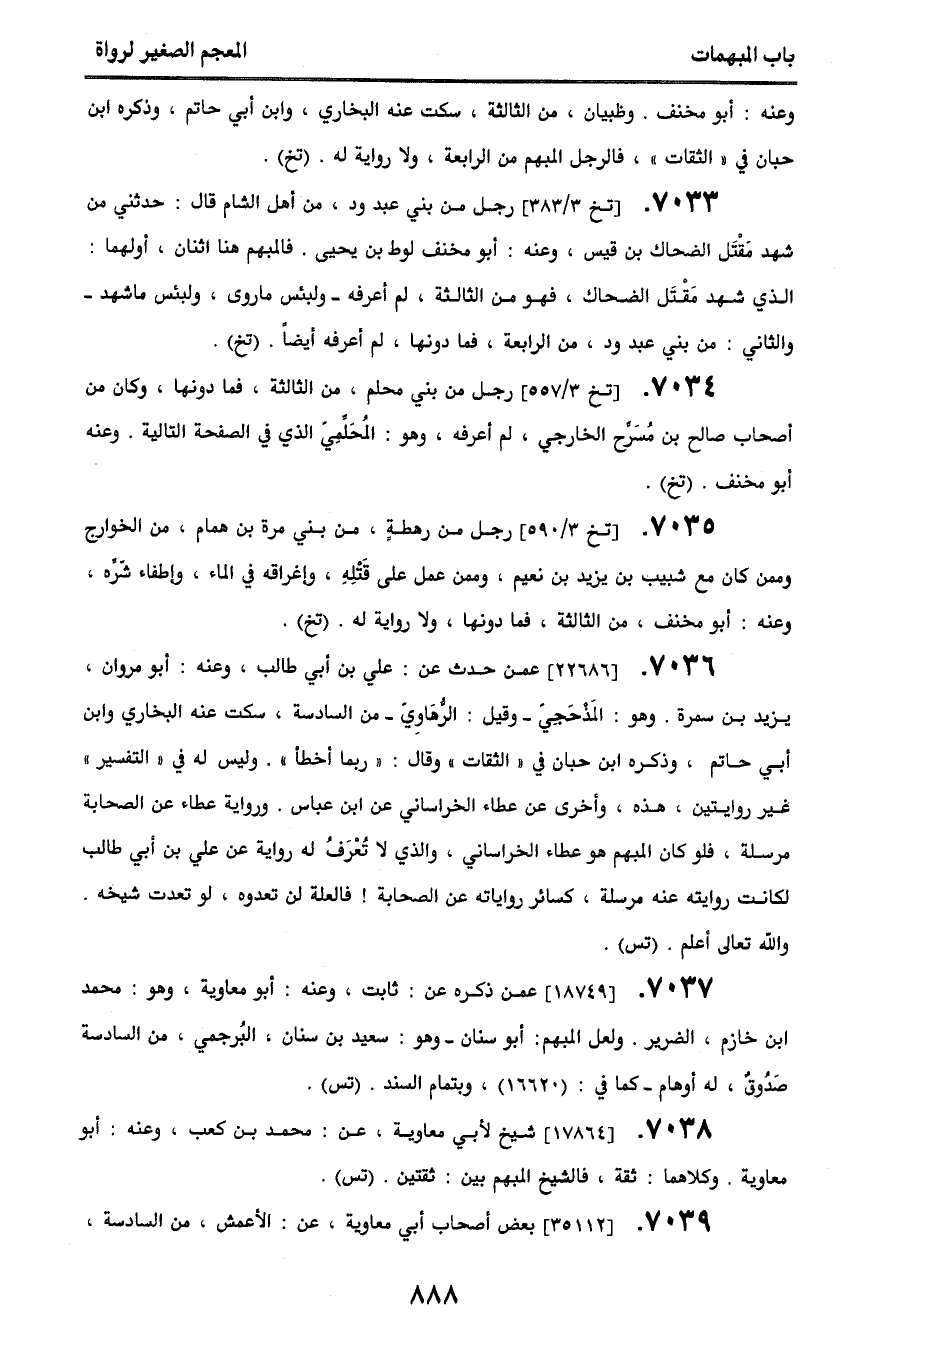 باب المبهمات
المعجم الصغير لرواة
وعنه : أبو مخنف . وظبيان ، من الثالثة ، سكت عنه البخاري ، وابن أبي حاتم ، وذكره ابن
حبان في « الثقات » ، فالرجل المبهم من الرابعة ، ولا رواية له . (تخ) .
٧٠٣٣. [تخ ٣٨٣/٣] رجل من بني عبد ود ، من أهل الشام قال : حدثني من
شهد مَقْتَل الضحاك بن قيس ، وعنه : أبو مخنف لوط بن يحيى . فالمبهم هنا اثنان ، أولهما :
الذي شهد مَقْتَل الضحاك ، فهو من الثالثة ، لم أعرفه ـ ولبئس ماروى ، ولبئس ماشهد ـ
والثاني : من بني عبد ود ، من الرابعة ، فما دونها ، لم أعرفه أيضاً . (تخ) .
٧٠٣٤. [تخ ٥٥٧/٣] رجل من بني محلم ، من الثالثة ، فما دونها ، وكان من
أصحاب صالح بن مُسَرَّح الخارجي ، لم أعرفه ، وهو : المُحَلَّمِيّ الذي في الصفحة التالية . وعنه
أبو مخنف . (تخ) .
٧٠٣٥. [تخ ٥٩٠/٣] رجل من رهطةٍ ، من بني مرة بن همام ، من الخوارج
وممن كان مع شبيب بن يزيد بن نعيم ، وممن عمل على قَتْلِهِ ، وإغراقه في الماء ، وإطفاء شَرَّه ،
وعنه : أبو مخنف ، من الثالثة ، فما دونها ، ولا رواية له . (تخ) .
٧٠٣٦. [٢٢٦٨٦] عمن حدث عن : علي بن أبي طالب ، وعنه : أبو مروان ،
يزيد بن سمرة . وهو : المَذْحَجيّ ـ وقيل : الرُّهَاوِيّ ـ من السادسة ، سكت عنه البخاري وابن
أبي حاتم ، وذكره ابن حبان في « الثقات » وقال : « ربما أخطأ » . وليس له في « التفسير »
غير روايتين ، هذه ، وأخرى عن عطاء الخراساني عن ابن عباس . ورواية عطاء عن الصحابة
مرسلة ، فلو كان المبهم هو عطاء الخراساني ، والذي لا تُعْرَفُ له رواية عن علي بن أبي طالب
لكانت روايته عنه مرسلة ، كسائر رواياته عن الصحابة ! فالعلة لن تعدوه ، لو تعدت شيخه .
والله تعالى أعلم . (تس) .
٧٠٣٧. [١٨٧٤٩] عمن ذكره عن : ثابت ، وعنه : أبو معاوية ، وهو : محمد
ابن خازم ، الضرير . ولعل المبهم: أبو سنان ـ وهو : سعيد بن سنان ، البُرجمي ، من السادسة
صَدُوقٌ ، له أوهام ـ كما في : (١٦٦٢٠) ، وبتمام السند . (تس) .
٧٠٣٨. [١٧٨٦٤] شيخ لأبي معاوية ، عن : محمد بن كعب ، وعنه : أبو
معاوية . وكلاهما : ثقة ، فالشيخ المبهم بين : ثقتين . (تس) .
٧٠٣٩. [٣٥١١٢] بعض أصحاب أبي معاوية ، عن : الأعمش ، من السادسة ،
٨٨٨